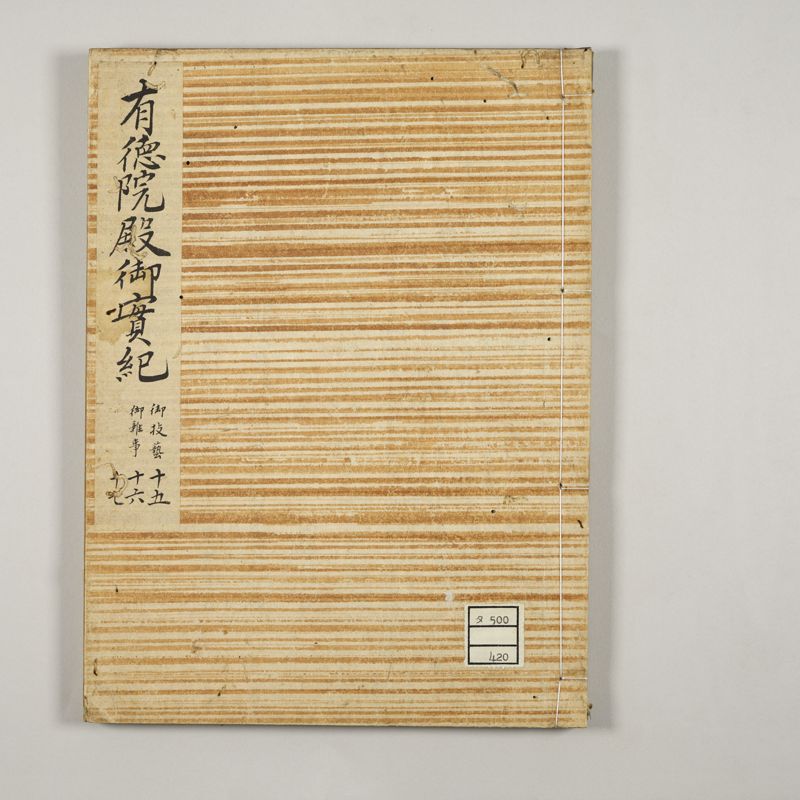 有德院殿御實紀
御技藝 十五
御雜事 十六
十七
タ 500
420